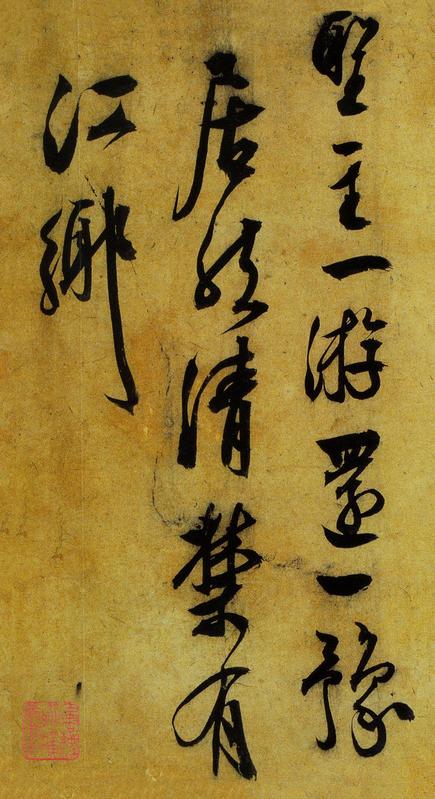 聖主一游還一豫
居然清禁有
江鄉